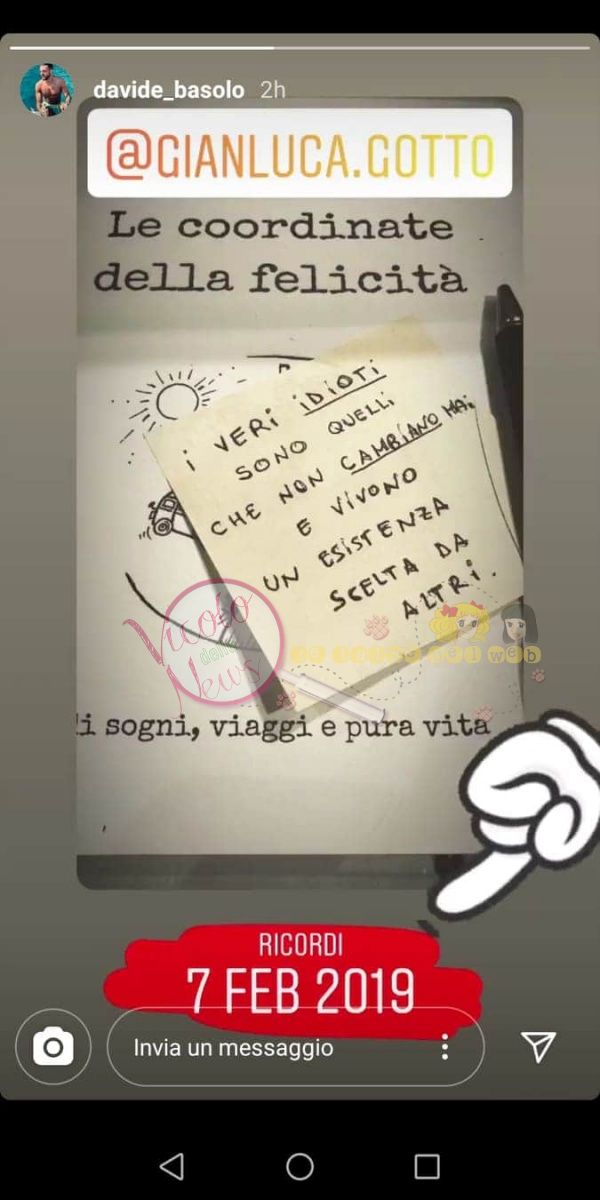 davide_basolo 2h
@GIANLUCA.GOTTO
Le coordinate
della felicità
i VERI iDiOTi
SONO QUELLi
CHE NON CAMBiANO MAi
E VIVONO
UN ESiSTENZA
SCELTA DA
ALTRi.
Vicolo
delle
News
web
di sogni, viaggi e pura vita
RICORDI
7 FEB 2019
Invia un messaggio